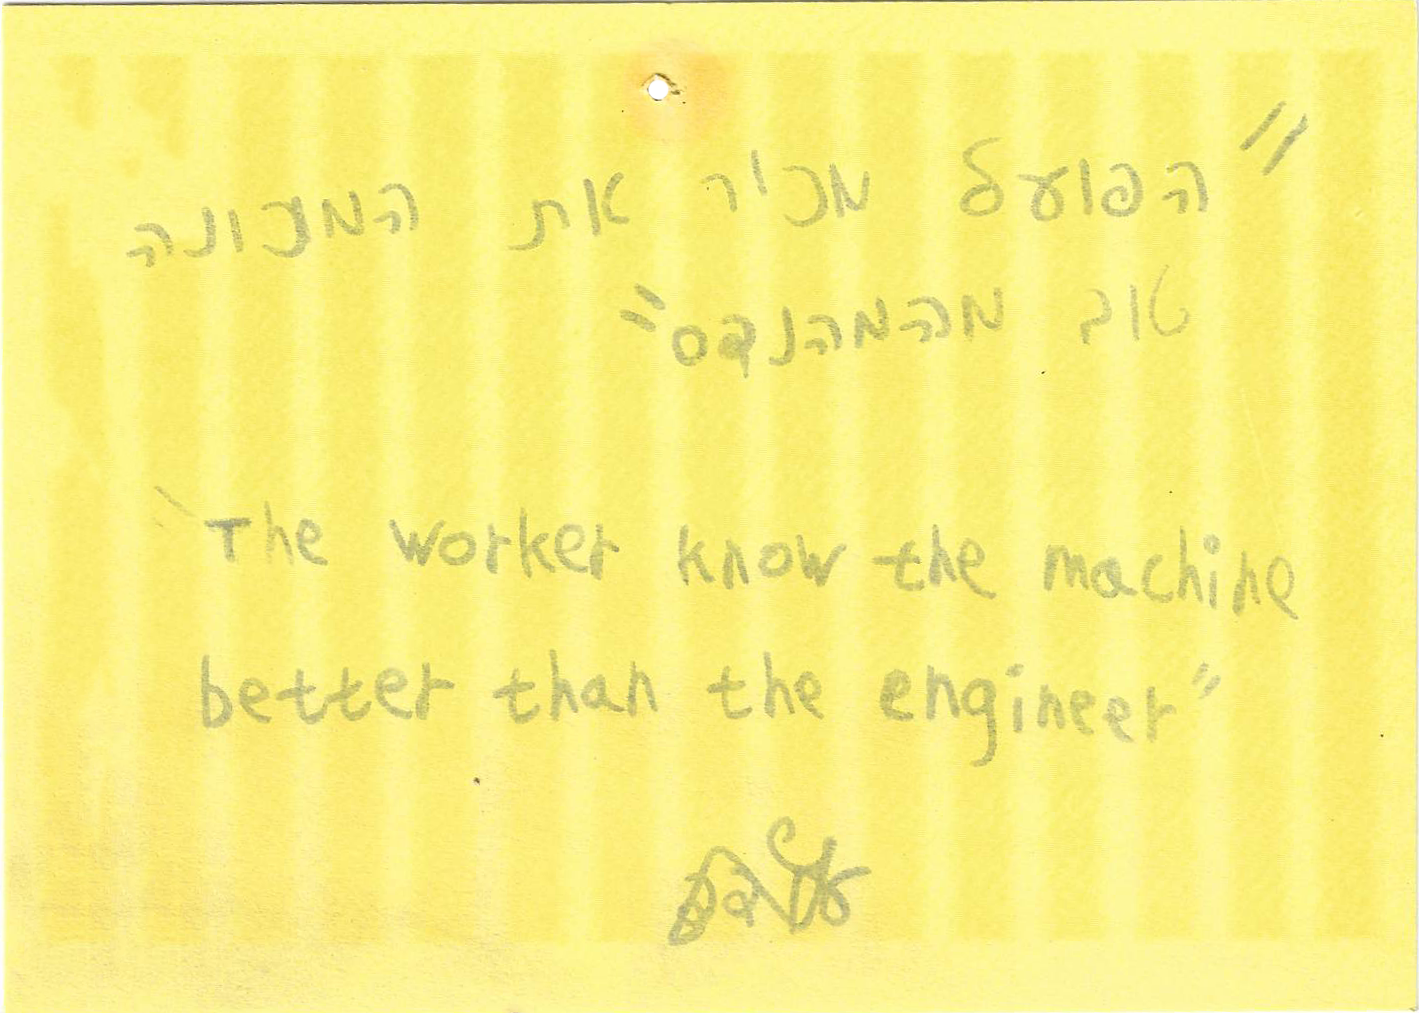 "הפועל מכיר את המכונה
טוב מהמהנדס"
"The worker know the machine
better than the engineer"